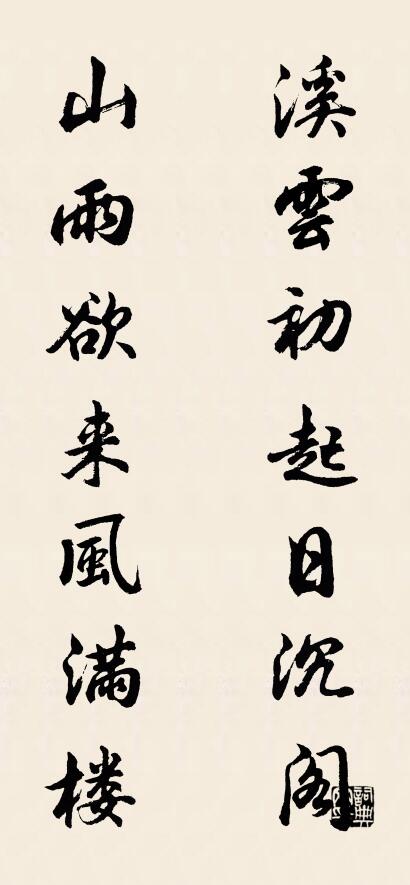 溪雲初起日沉阁
山雨欲来風满楼